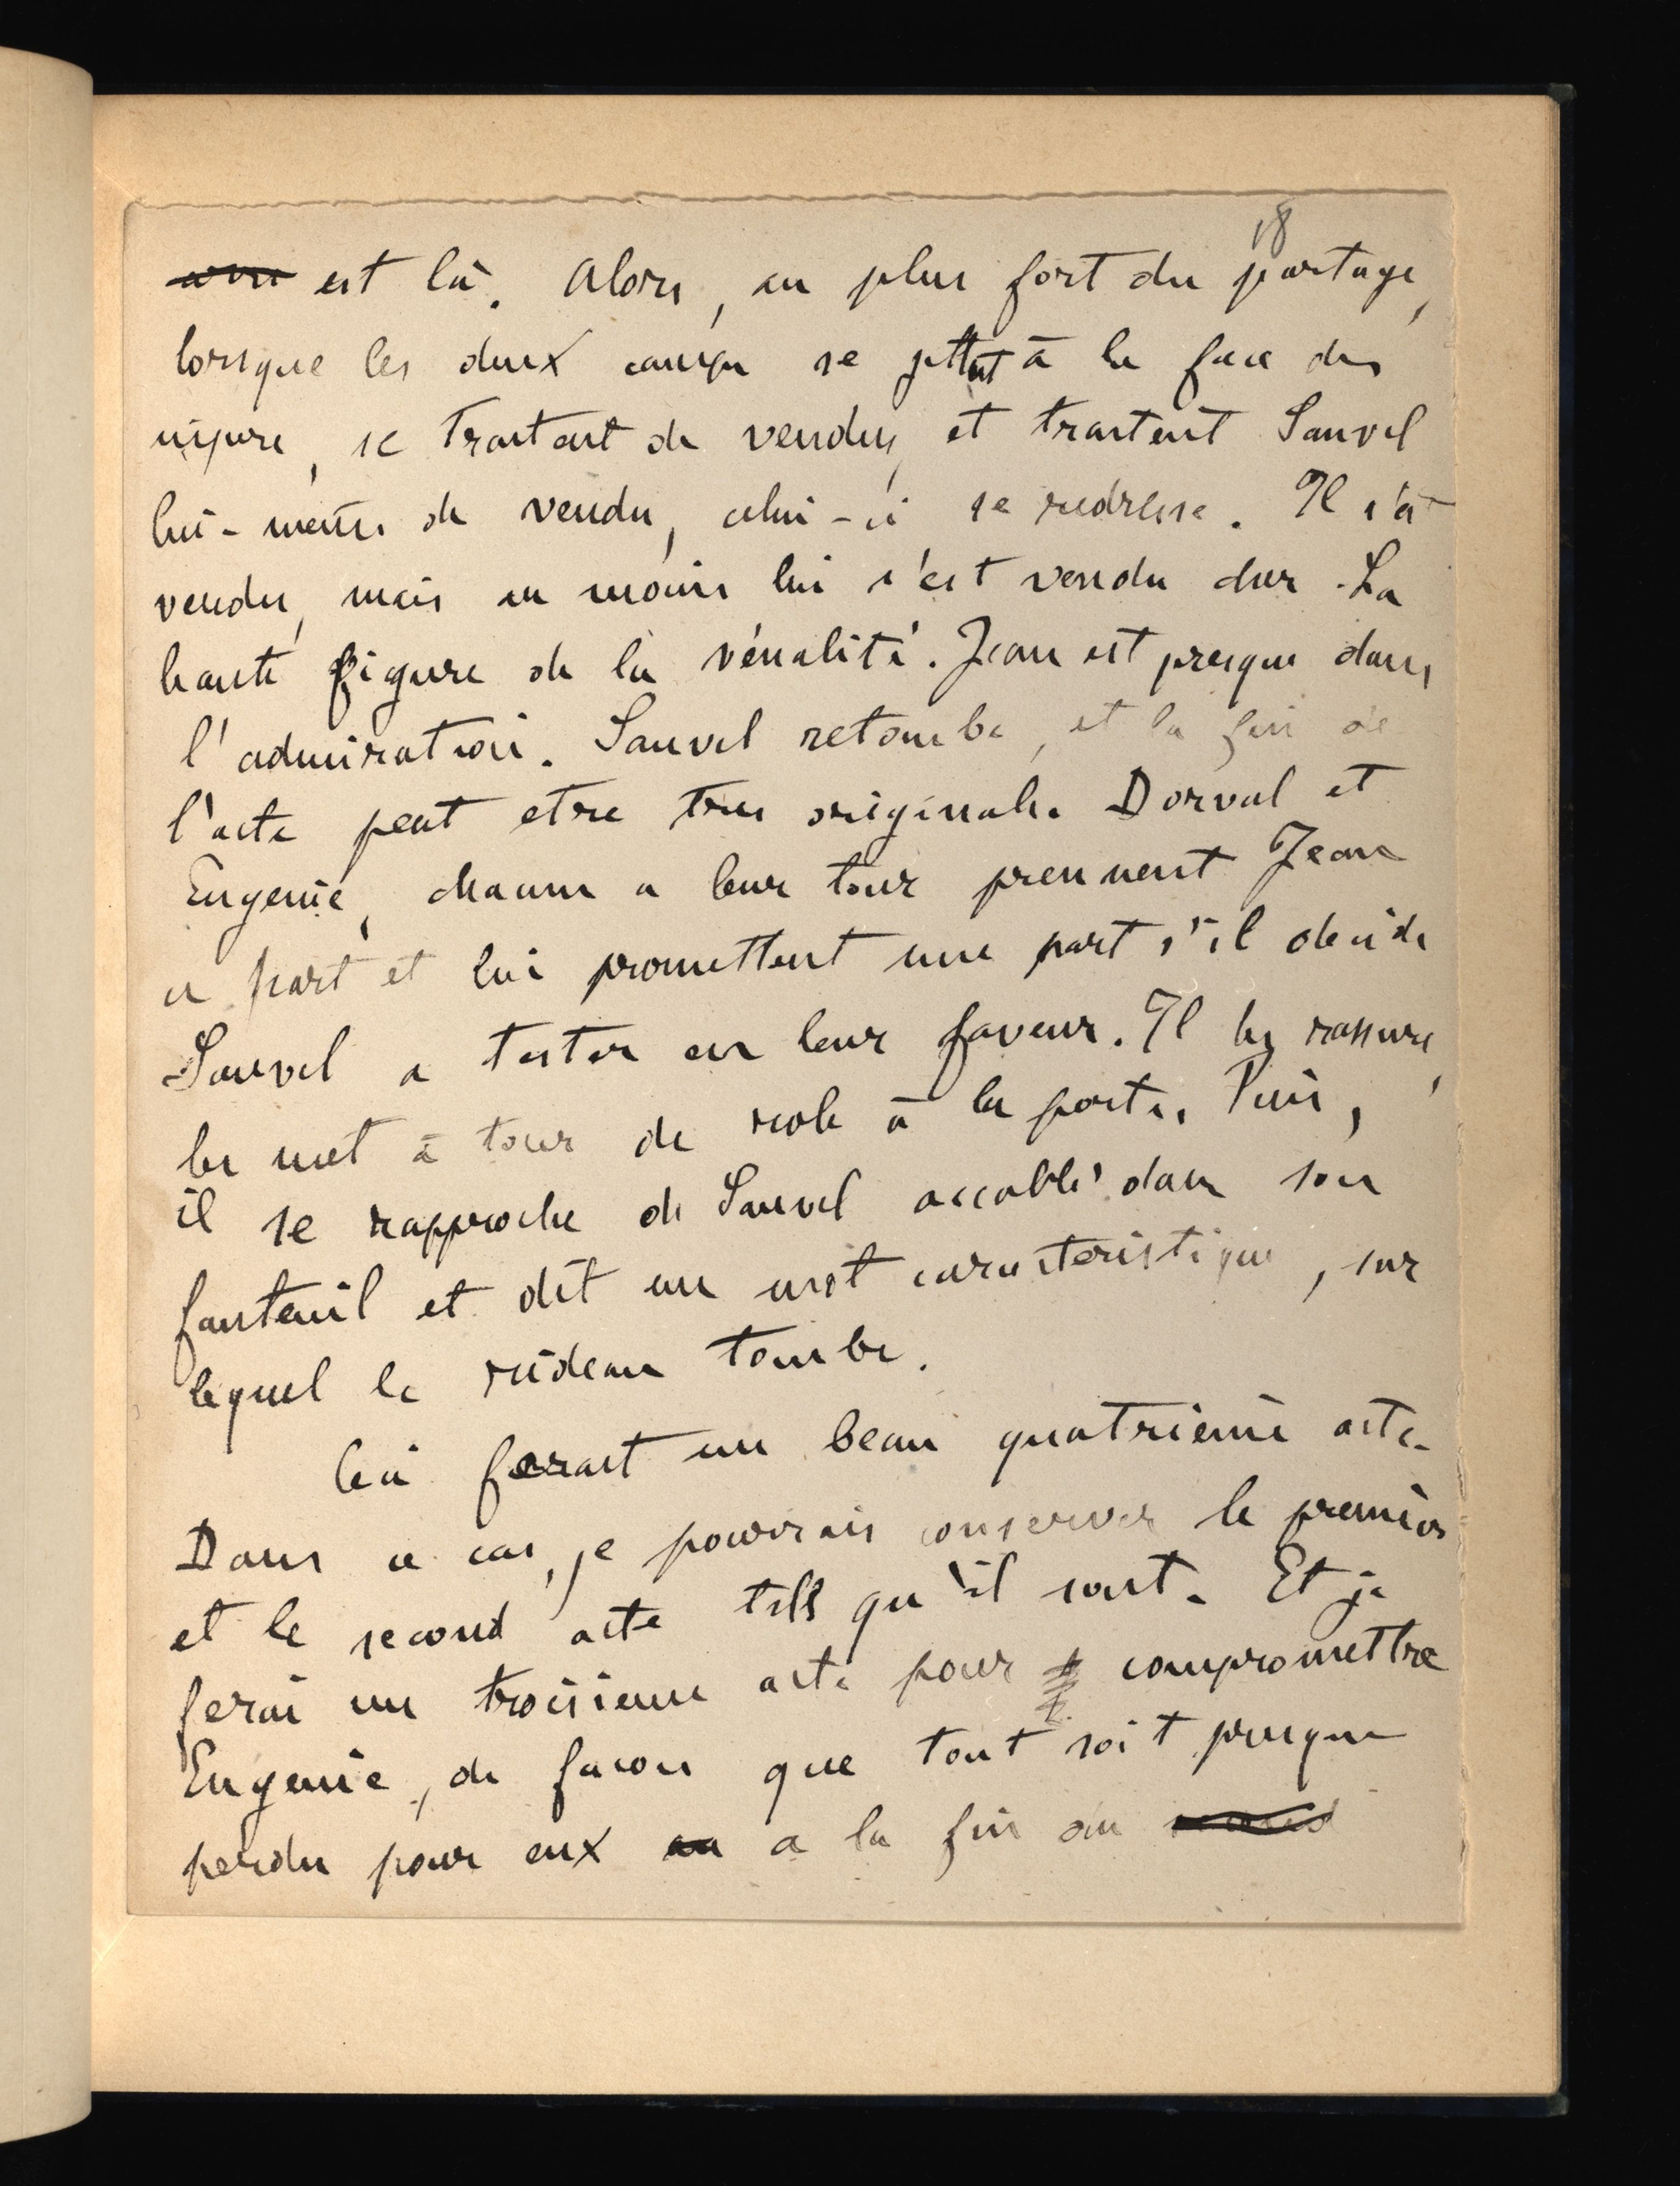 18
est là. Alors, au plus fort du partage,
lorsque les deux camps se jettent à la face des
injure, se traitent de vendus, et traitent Sauvel
lui-même de vendu, celui-ci se redresse. Il s'est
vendu, mais au moins lui s'est vendu cher. La
haute figure de la vénalité. Jean est presque dans
l'admiration. Sauvel retombe, et la fin de
l'acte peut etre tres originale. Dorval et
Eugenie, chacun a leur tour prennent Jean
a part et lui promettent une part s'il decide
Sauvel a tester en leur faveur. Il les rassure,
les met à tour de role à la porte. Puis,
il se rapproche de Sauvel accablé dans son
fauteuil et dit un mot caracteristique, sur
lequel le rideau tombe.
Ceci ferait un beau quatrième acte.
Dans ce cas, je pourrais conserver le premier
et le second acte tels qu'il sont. Et je
ferai un troisieme acte pour compromettre
Eugenie, de facon que tout soit presque
perdu pour eux au a la fin du